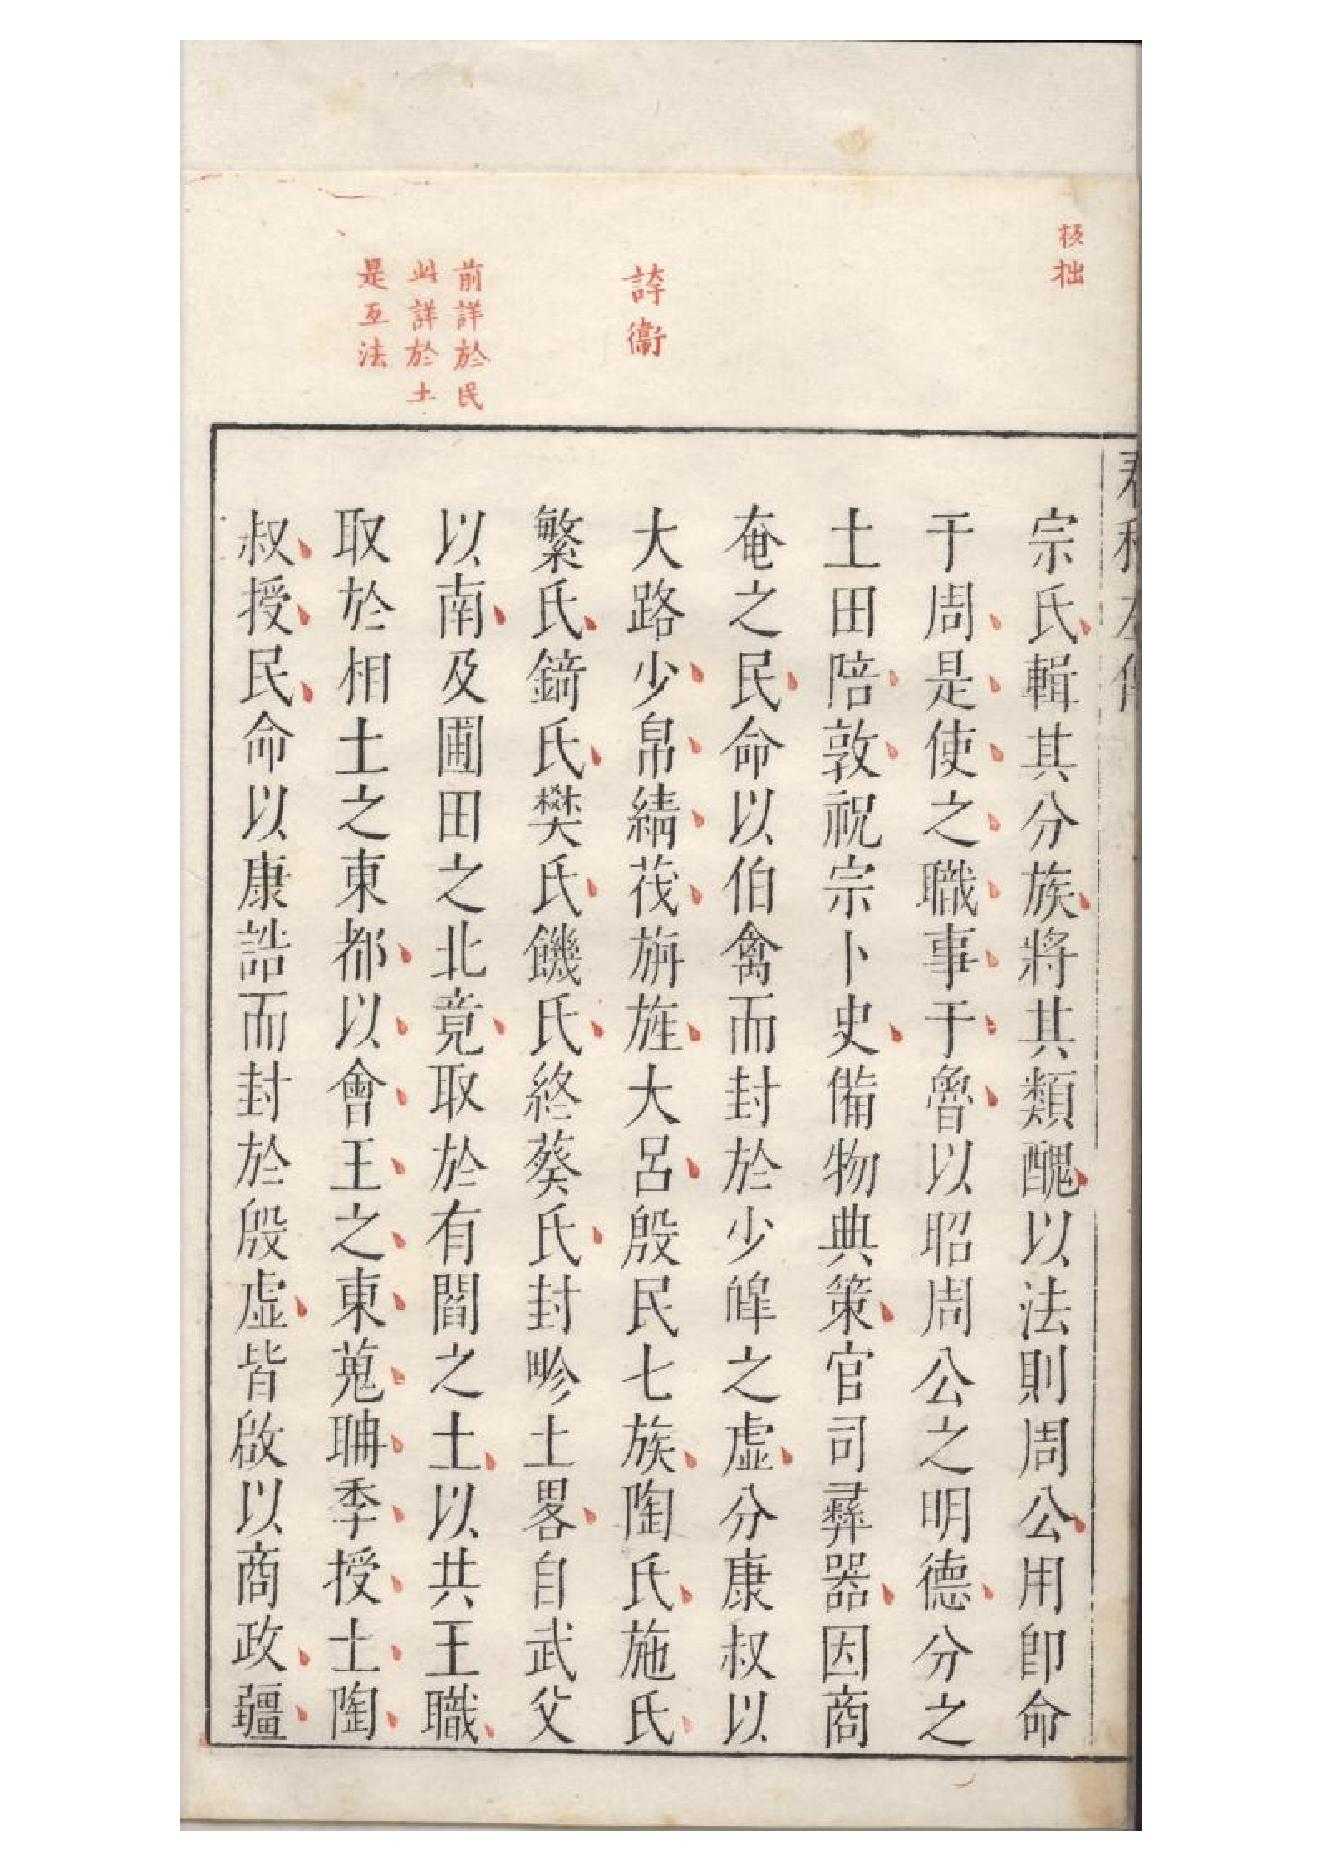 核拙
誇衞
前詳於民
此詳於土
是互法
春秋左傳
宗氏輯其分族將其類醜以法則周公用卽命
于周是使之職事于魯以昭周公之明德分之
土田陪敦祝宗卜史備物典策官司彛器因商
奄之民命以伯禽而封於少皥之虛分康叔以
大路少帛綪茷旃旌大呂殷民七族陶氏施氏
繁氏錡氏樊氏饑氏終葵氏封畛土畧自武父
以南及圃田之北竟取於有閻之土以共王職
取於相土之東都以會王之東蒐聃季授土陶
叔授民命以康誥而封於殷虛皆啟以商政疆